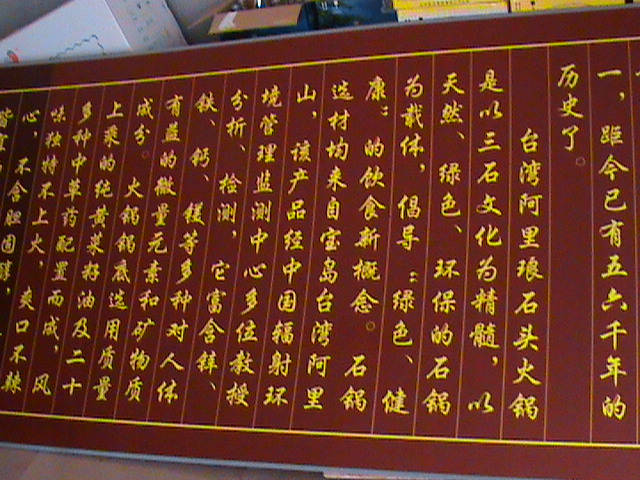 一，距今已有五六千年的
历史了。
台湾阿里琅石头火锅
是以三石文化为精髓，以
天然、绿色、环保的石锅
为载体，倡导：绿色、健
康：的饮食新概念。石锅
选材均来自宝岛台湾阿里
山，该产品经中国辐射环
境管理监测中心多位教授
分析、检测，它富含锌、
铁、钙、镁等多种对人体
有益的微量元素和矿物质
成分。火锅锅底选用质量
上乘的纯黄菜籽油及二十
多种中草药配置而成，风
味独特不上火，爽口不辣
心，不含胆固醇，